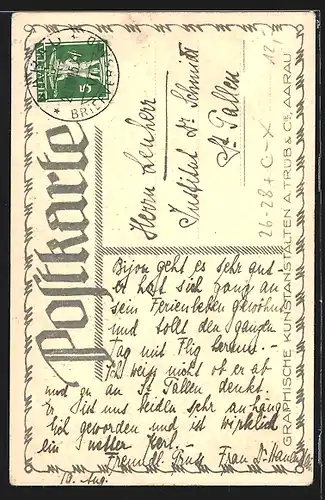 Postkarte
HELVETIA
5
BRIENZERS
Herrn Lenherr
Institut Dr. Schmidt
St. Gallen
26-28 + G-X
12.-
Bijou geht es sehr gut -
er hat sich ganz an
sein Ferienleben gewöhnt
und tollt den ganzen
Tag mit Flig herum. -
Ich weiss nicht ob er ab
und zu an St. Gallen denkt.
Er ist uns seidln sehr anhäng-
lich geworden und ist wirklich
ein netter Kerl. -
Freundl. Gruss Frau Dr.
10. Aug.
GRAPHISCHE KUNSTANSTALTEN A. TRÜB & Cie. AARAU